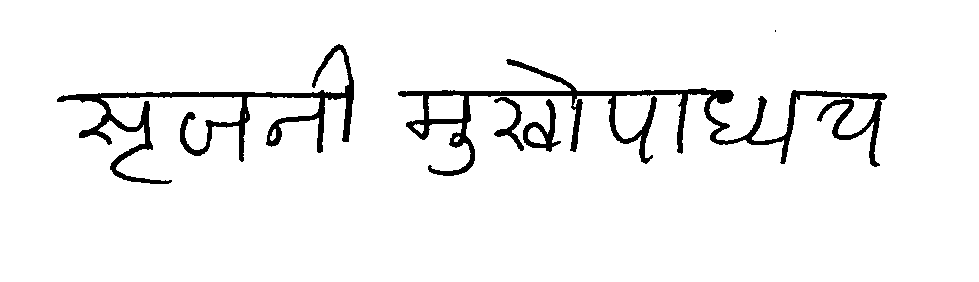 सृजनी मुखोपाध्याय